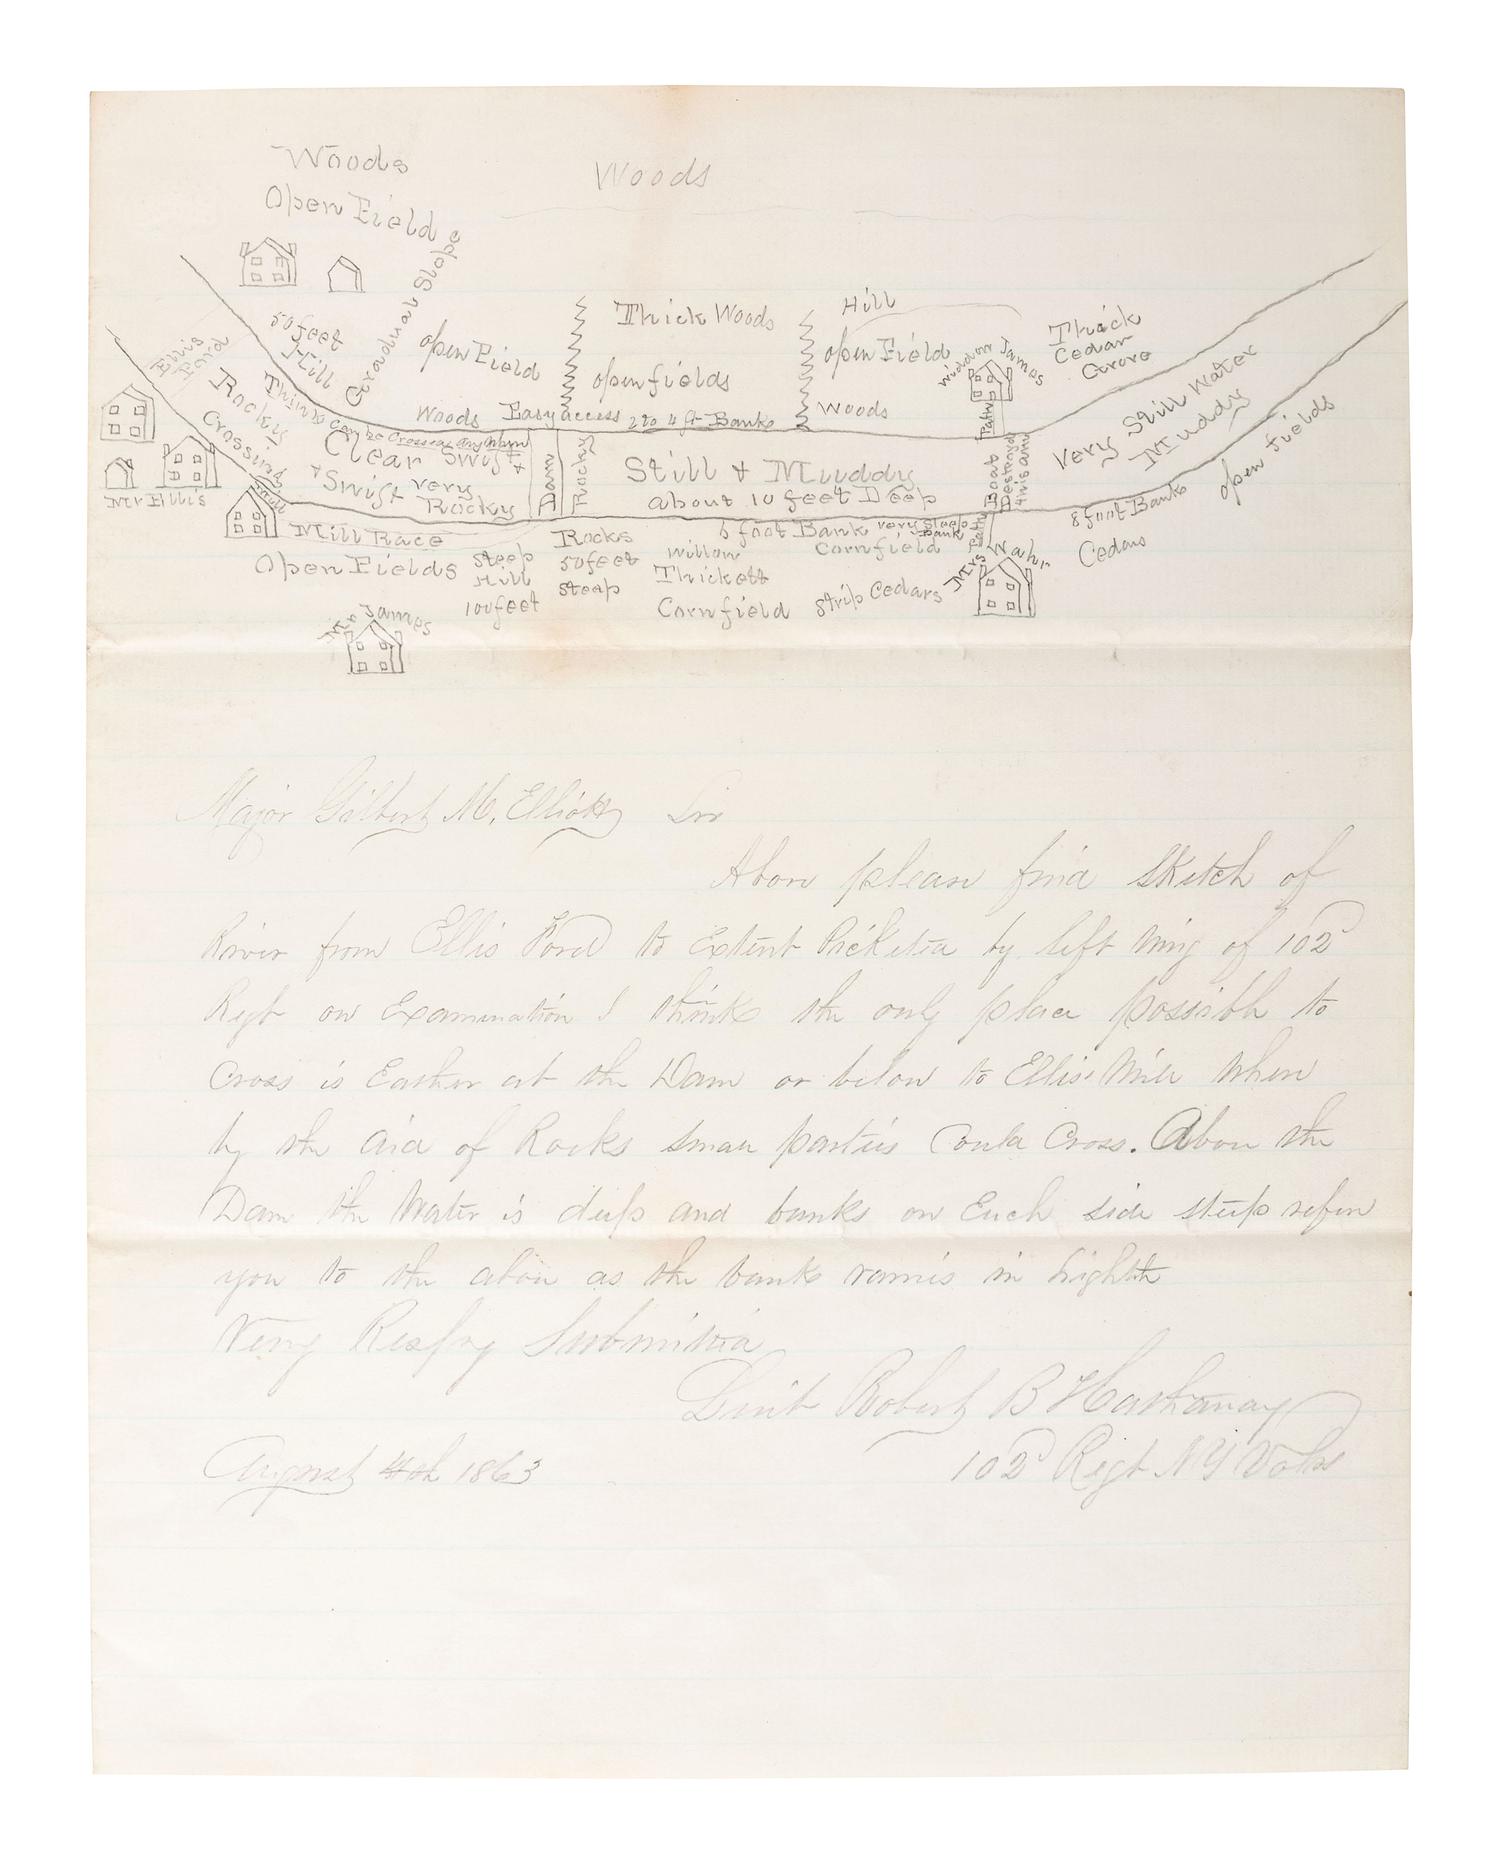 Woods
Woods
Open Field
Gradual Slope
50 feet
Hill
Ellis
Ford
Rocky
Crossing
Think can be Crossed any whare
open Field
Thick Woods
open fields
Hill
open Field
Widow James
Thick
Cedar
Grove
Woods
Easy access 2 to 4 ft Banks
Woods
Path
Clear Swift +
+ Swift very
Rocky
Dam
Rocky
Still & Muddy
about 10 feet Deep
Boat
Destroyd
this am
Very Still Water
Muddy
open Fields
Mr Ellis
Mill
Mill Race
Open Fields
Steep
Hill
100 feet
Rocks
50 feet
Steap
6 foot Bank very Steep
Bank
Willow
Thickett
Cornfield
Cornfield
Strip Cedars
Path
Mrs Wahr
8 foot Bank
Cedars
Mr James
Major Gilbert M. Elliott Sir
Above please find Sketch of
River from Ellis Ford to Extent Picketed by left Wing of 102d
Regt on Examination I think the only place possible to
Cross is Eather at the Dam or below to Ellis' Mill When
by the aid of Rocks Small parties Could Cross. Above the
Dam the Water is deep and banks on Each side steep refer
you to the above as the banks varies in highth
Very Respfy Submitted
Leut Robert B Hathaway
August 4th 1863
102d Regt N Y Vols